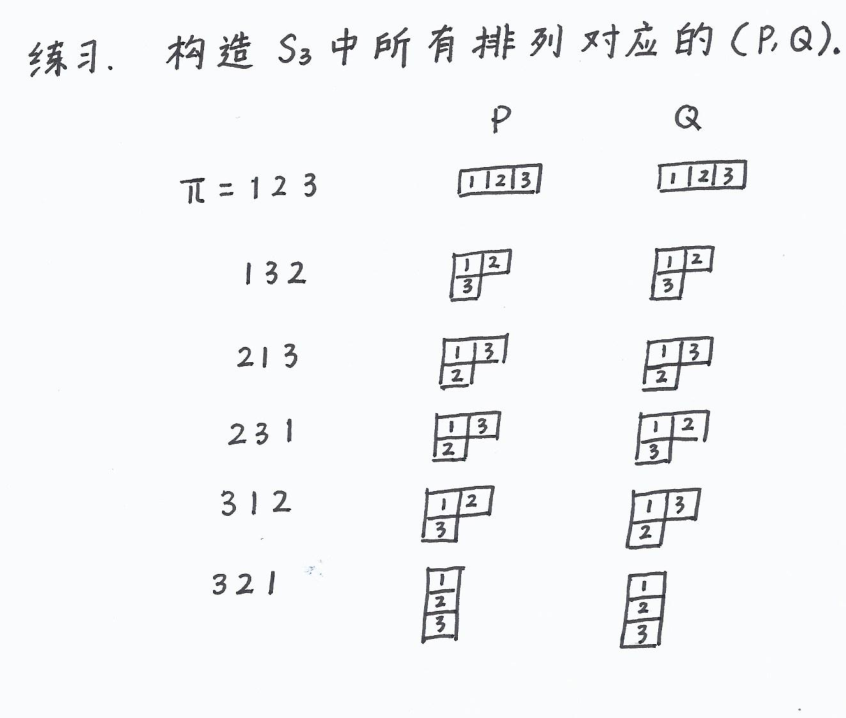 练习. 构造 S₃ 中所有排列对应的 (P, Q).
P Q
π = 1 2 3 1 2 3 1 2 3
1 3 2 1 2 1 2
3 3
2 1 3 1 3 1 3
2 2
2 3 1 1 3 1 2
2 3
3 1 2 1 2 1 3
3 2
3 2 1 1 1
2 2
3 3